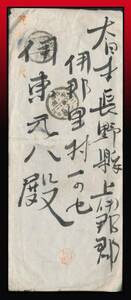 大日本長野縣上伊那郡
伊那里村一の七
伊東元八殿